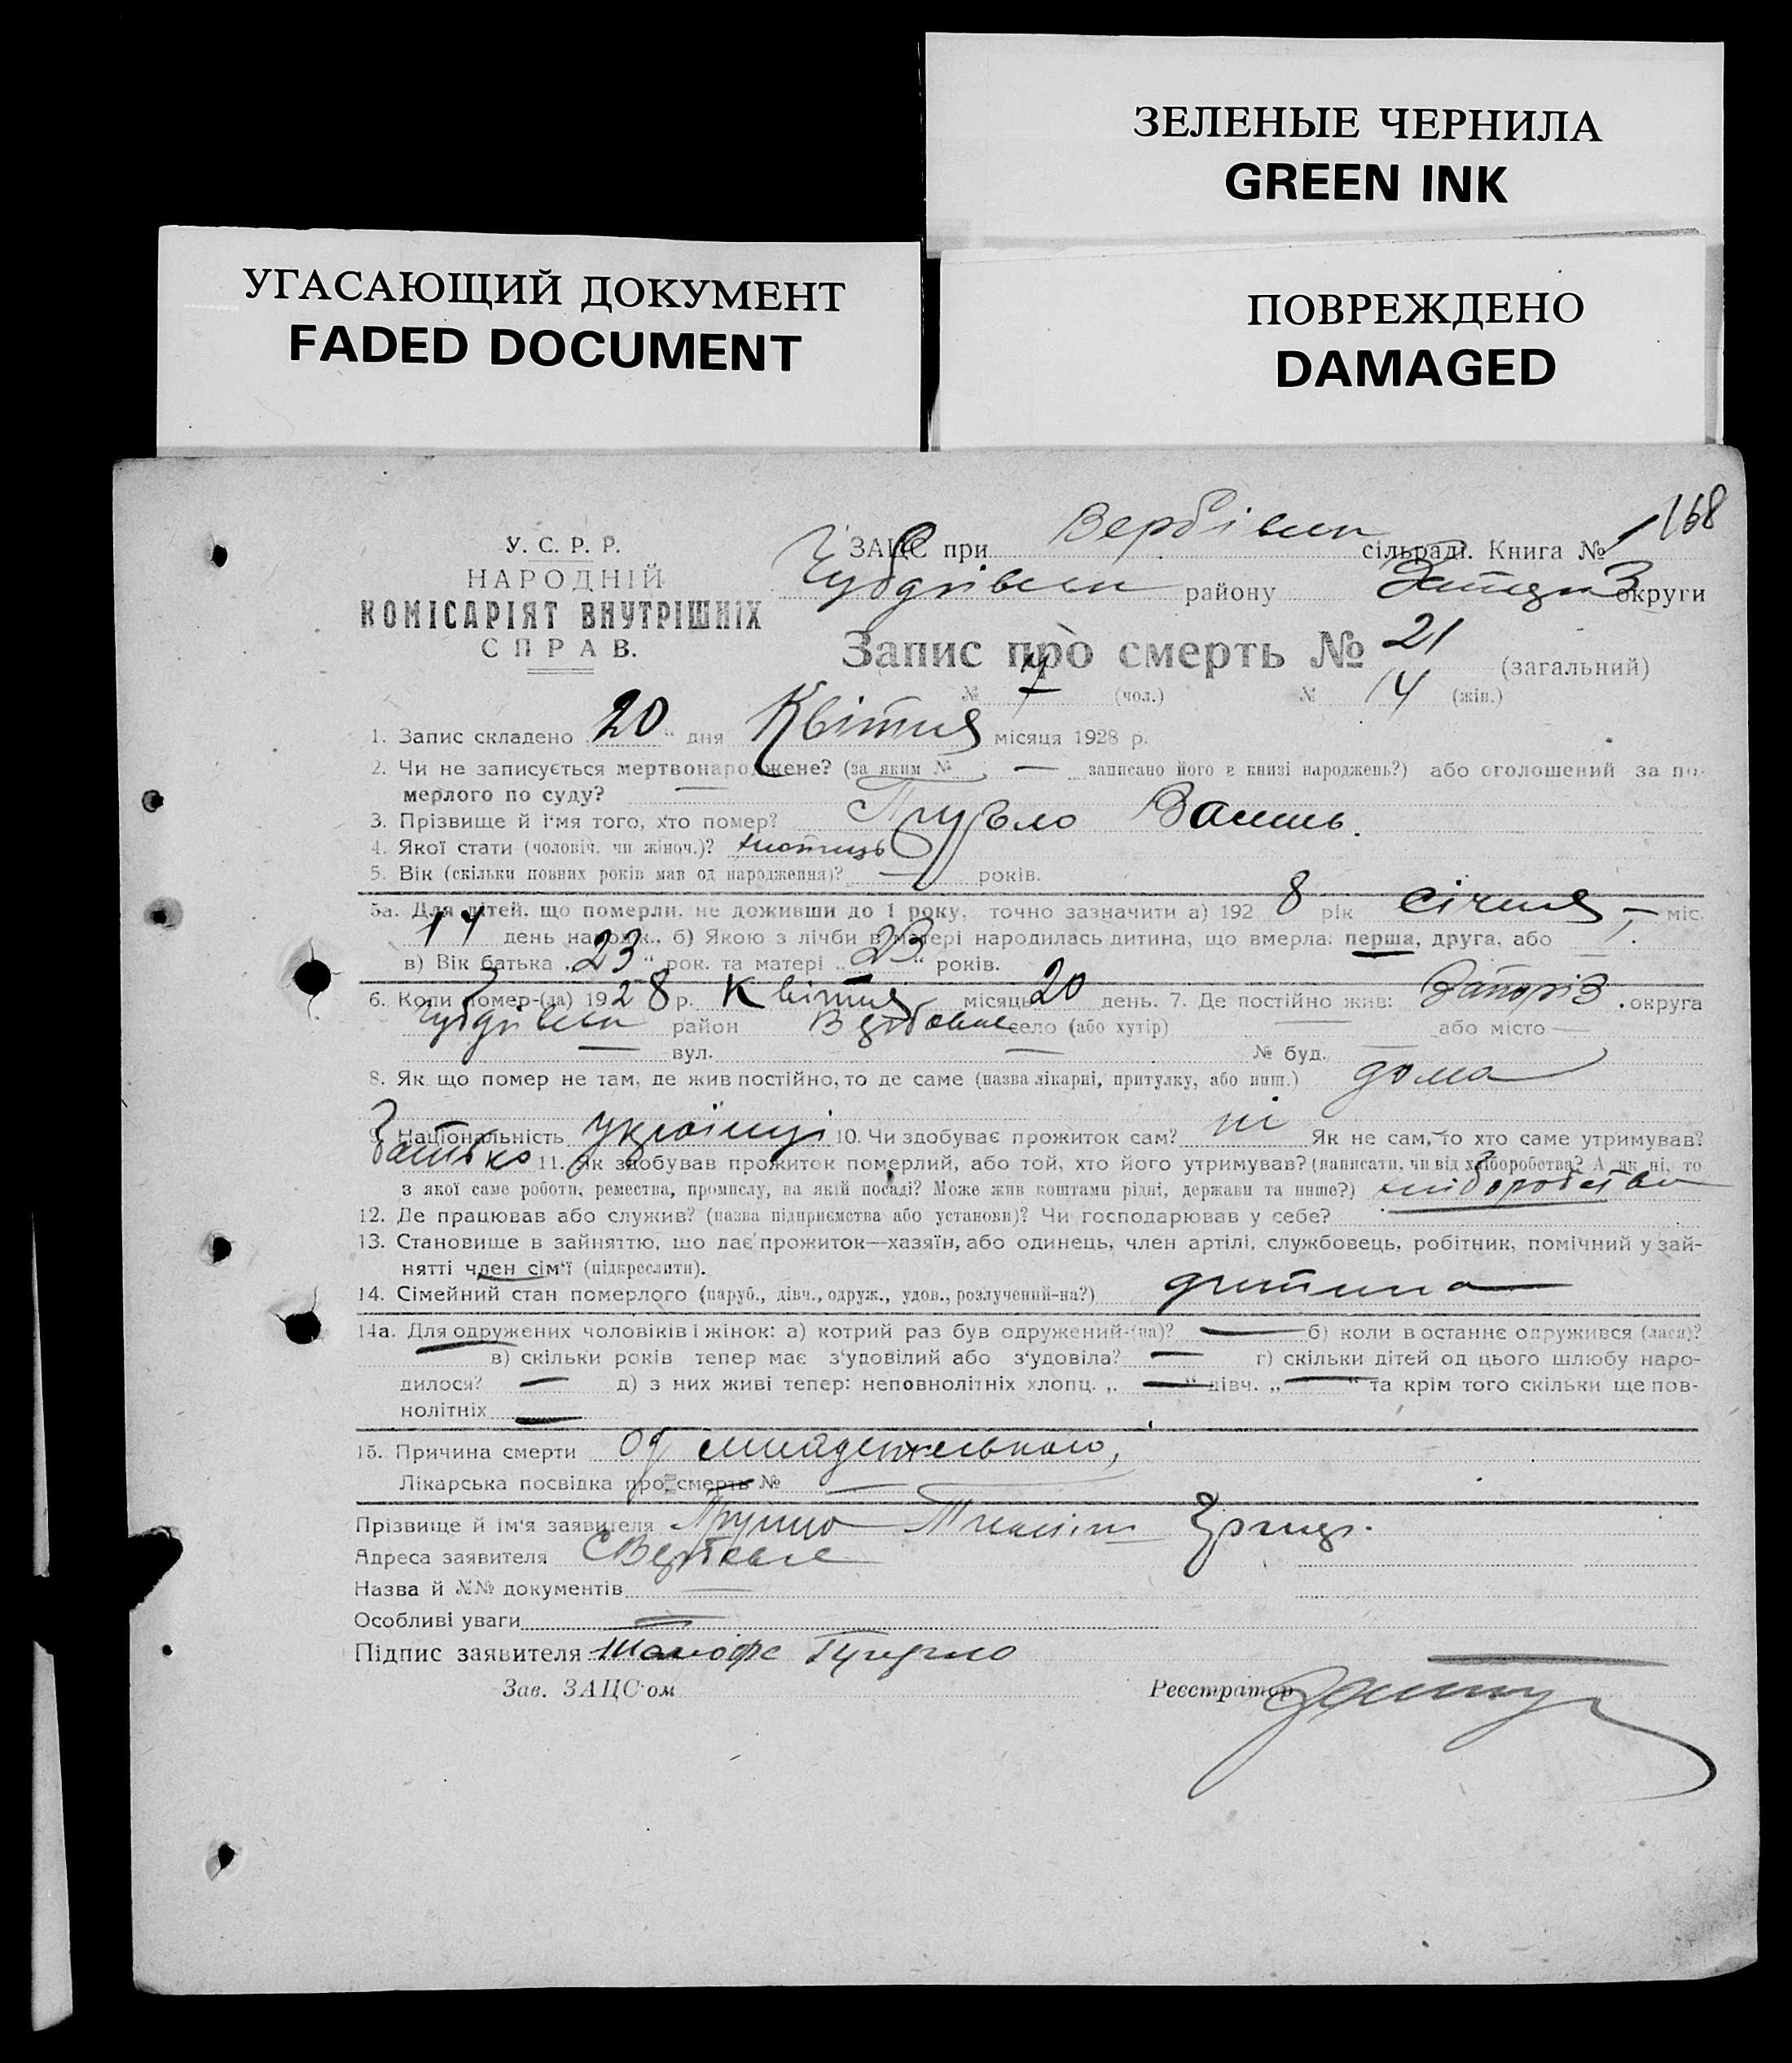 ЗЕЛЕНЫЕ ЧЕРНИЛА
GREEN INK
УГАСАЮЩИЙ ДОКУМЕНТ
FADED DOCUMENT
ПОВРЕЖДЕНО
DAMAGED
168
У. С. Р. Р.
НАРОДНІЙ
КОМІСАРІЯТ ВНУТРІШНІХ
СПРАВ.
ЗАЦС при сільраді. Книга № 1
району округи
Запис про смерть № 21 (загальний)
№ 7 (чол.) № 14 (жін.)
1. Запис складено 20 " дня Квітня місяця 1928 р.
2. Чи не записується мертвонароджене? (за яким № — записано його в книзі народжень?) або оголошений за по-
мерлого по суду? —
3. Прізвище й ім'я того, хто помер?
4. Якої статі (чоловіч. чи жіноч.)?
5. Вік (скільки повних років мав од народження)? — років.
5а. Для дітей, що померли, не доживши до 1 року, точно зазначити а) 192 8 рік січня — міс.
14 день народж., б) Якою з лічби в матері народилась дитина, що вмерла: перша, друга, або —
в) Вік батька „ 23 " рок. та матері „ 23 " років.
6. Коли помер-(ла) 1928 р. Квітня місяць 20 день. 7. Де постійно жив: Запоріз. округа
район село (або хутір) — або місто —
— вул. — № буд. —
8. Як що помер не там, де жив постійно, то де саме (назва лікарні, притулку, або инш.) дома
9. Національність українці 10. Чи здобуває прожиток сам? ні Як не сам, то хто саме утримував?
батько 11. Як здобував прожиток померлий, або той, хто його утримував? (написати, чи від хліборобства? А як ні, то
з якої саме роботи, ремества, промислу, на якій посаді? Може жив коштами рідні, держави та инше?) хліборобства
12. Де працював або служив? (назва підприємства або установи)? Чи господарював у себе?
13. Становище в зайняттю, що дає прожиток—хазяїн, або одинець, член артілі, службовець, робітник, помічний у зай-
нятті член сім'ї (підкреслити).
14. Сімейний стан померлого (паруб., дівч., одруж., удов., розлучений-на?) дитина
14а. Для одружених чоловіків і жінок: а) котрий раз був одружений-(на)? — б) коли в останнє одружився (лася)?
— в) скільки років тепер має з'удовілий або з'удовіла? — г) скільки дітей од цього шлюбу наро-
дилося? — д) з них живі тепер: неповнолітніх хлопц. „ — " дівч. „ — " та крім того скільки ще пов-
нолітніх —
15. Причина смерти од младенжельного,
Лікарська посвідка про смерть № —
Прізвище й ім'я заявителя
Адреса заявителя
Назва й №№ документів —
Особливі уваги —
Підпис заявителя
Зав. ЗАЦС'ом Реєстратор